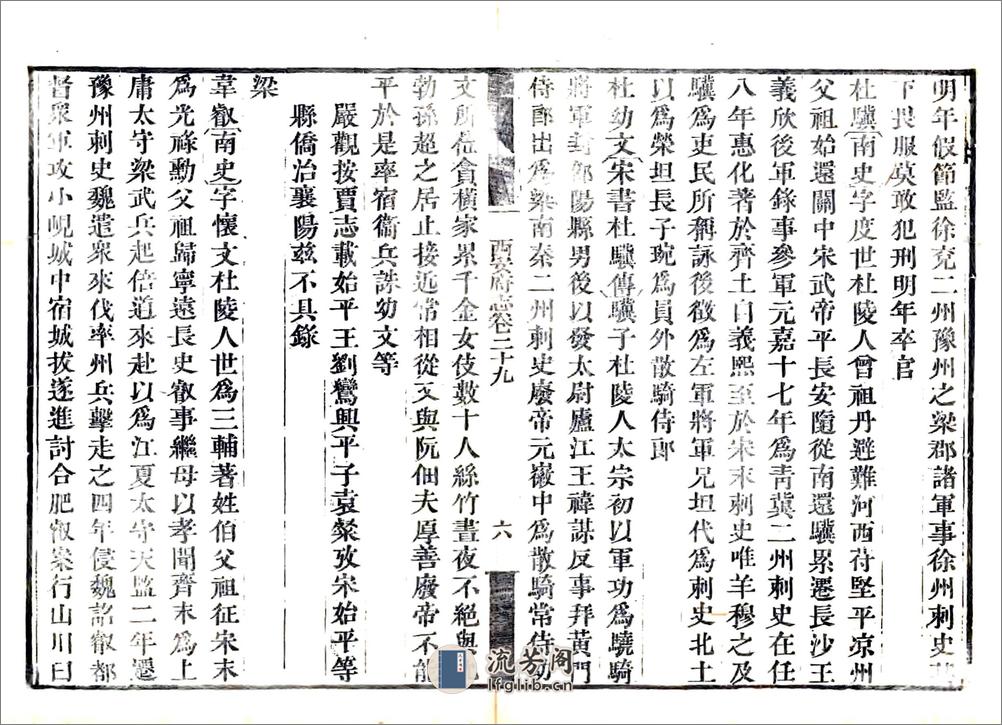 明年假節監徐兖二州豫州之梁郡諸軍事徐州刺史
下畏服莫敢犯刑明年卒官
杜驥南史字度世杜陵人曾祖丹避難河西苻堅平凉州
父祖始還關中宋武帝平長安隨從南還驥累遷長沙王
義欣後軍錄事參軍元嘉十七年爲靑冀二州刺史在任
八年惠化著於齊土自義熙至於宋末刺史唯羊穆之及
驥爲吏民所稱詠後徵爲左軍將軍兄坦代爲刺史北土
以爲榮坦長子琬爲員外散騎侍郎
杜幼文宋書杜驥傳驥子杜陵人太宗初以軍功爲驍騎
將軍封邵陽縣男後以發太尉廬江王禕謀反事拜黃門
侍郎出爲梁南秦二州刺史廢帝元徽中爲散騎常侍幼
文所莅貪橫家累千金女伎數十人絲竹晝夜不絕與
勃孫超之居止接近常相從又與阮佃夫厚善廢帝不能
平於是率宿衞兵誅幼文等
嚴觀按賈志載始平王劉鸞興平子袁粲攷宋始平等
縣僑治襄陽玆不具錄
西安府志卷二十九
六
梁
韋叡南史字懷文杜陵人世爲三輔著姓伯父祖征宋末
爲光祿勲父祖歸寧遠長史叡事繼母以孝聞齊末爲上
庸太守梁武兵起倍道來赴以爲江夏太守天監二年遷
豫州刺史魏遣衆來伐率州兵擊走之四年侵魏詔叡都
督衆軍攻小峴城中宿城拔遂進討合肥叡案行山川曰
流芳阁
lfglib.cn